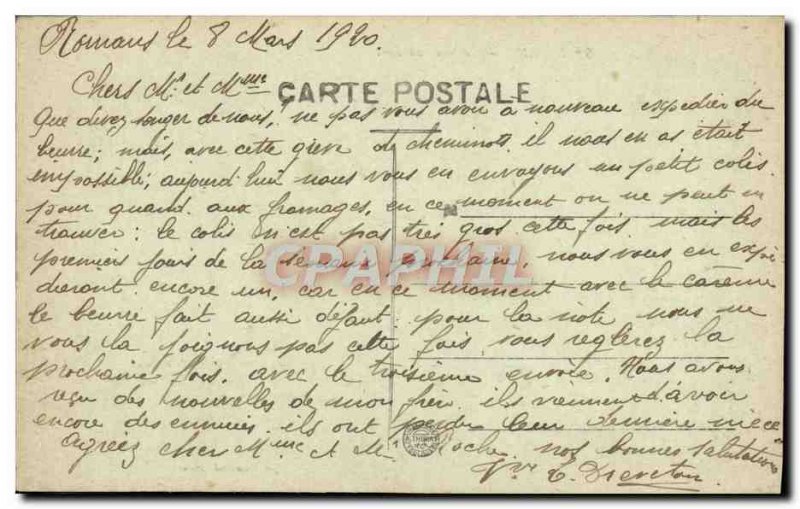 Romans le 8 Mars 1920.
Chers Mr et Mme
CARTE POSTALE
Que devez songer de nous, ne pas vous avoir a nouveau expedier du
beurre; mais, avec cette greve de cheminots il nous en as était
impossible; aujourd'hui nous vous en envoyons un petit colis.
pour quand aux fromages, en ce moment on ne peut en
trouver: le colis n'est pas très gros cette fois mais les
premiers jours de la semaine prochaine, nous vous en expé
dieront encore un, car en ce moment avec le carême
le beurre fait aussi défaut, pour la note nous ne
vous la joignons pas cette fois, vous reglerez la
prochaine fois, avec le troisième envoie. Nous avons
reçu des nouvelles de mon frere, ils viennent d'avoir
encore des ennuies, ils ont perdu leur dernière nièce
Agreez cher Mme et Mr Roche nos bonnes salutations
CPARAMA
CPAPHIL